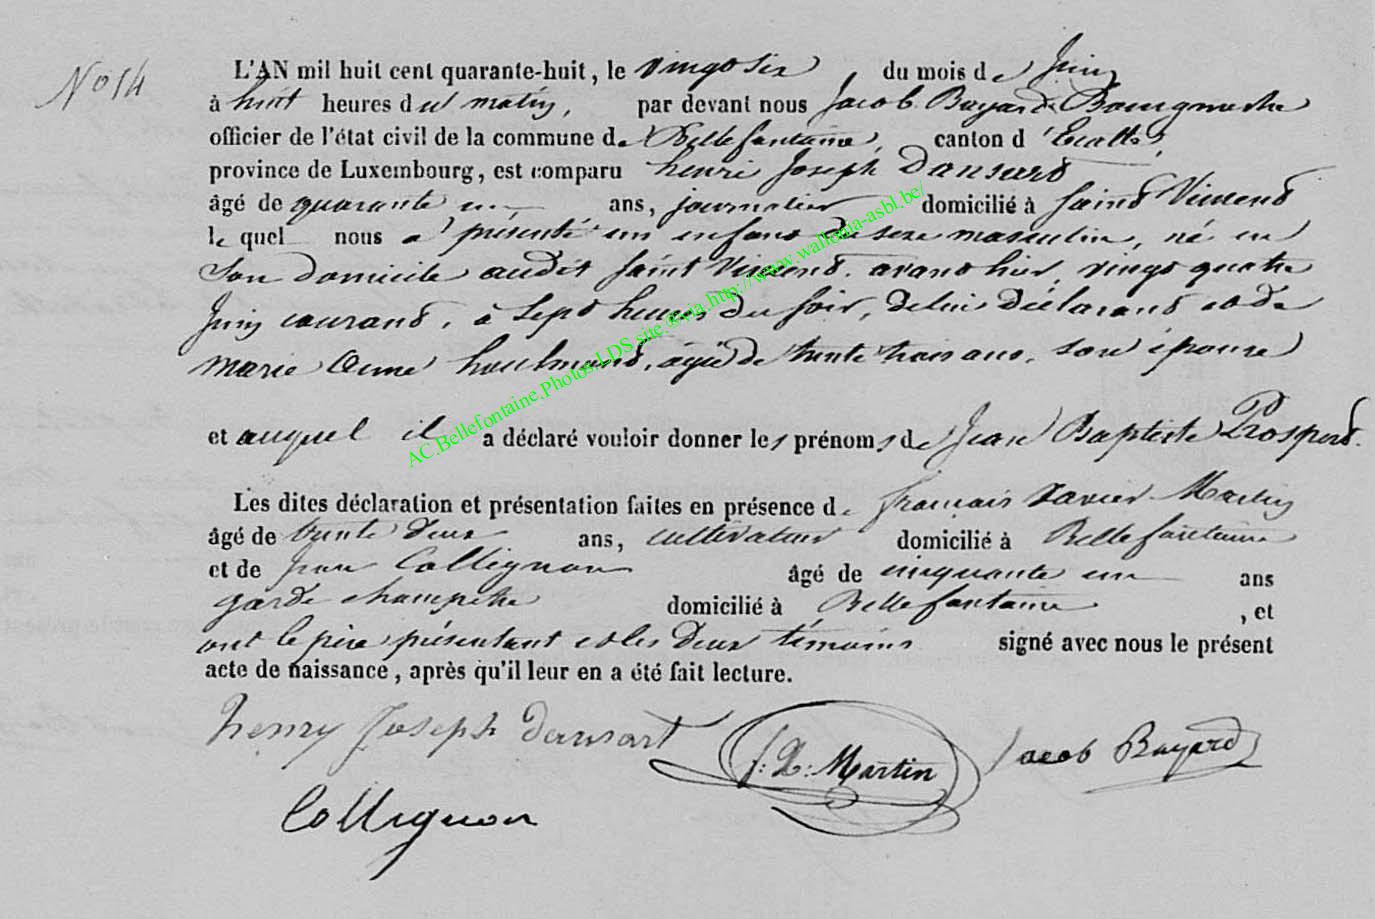 No 14
L'AN mil huit cent quarante-huit, le vingt six du mois de Juin
à huit heures du matin, par devant nous Jacob Bayard Bourgmestre
officier de l'état civil de la commune de Bellefontaine, canton d'Etalle,
province de Luxembourg, est comparu henri Joseph Dansard
âgé de quarante un ans, journalier domicilié à Saint Vincent
lequel nous a présenté un enfant du sexe masculin, né en
son domicile audit Saint Vincent, avant hier, vingt quatre
Juin courant, à sept heures du soir, de lui déclarant et de
marie Anne, âgée de trente trois ans, son épouse
et auquel il a déclaré vouloir donner les prénoms de Jean Baptiste Prosperd.
Les dites déclaration et présentation faites en présence de françois Xavier Martin
âgé de trente deux ans, cultivateur domicilié à Bellefontaine
et de Jean Collignon âgé de cinquante un ans
garde champetre domicilié à Bellefontaine, et
ont le père présentant et les deux témoins signé avec nous le présent
acte de naissance, après qu'il leur en a été fait lecture.
henry Joseph dansart f: X: Martin Jacob Bayard
Collignon
AC.Bellefontaine.Photos.LDS.site.@via.http://www.wallonia-asbl.be/